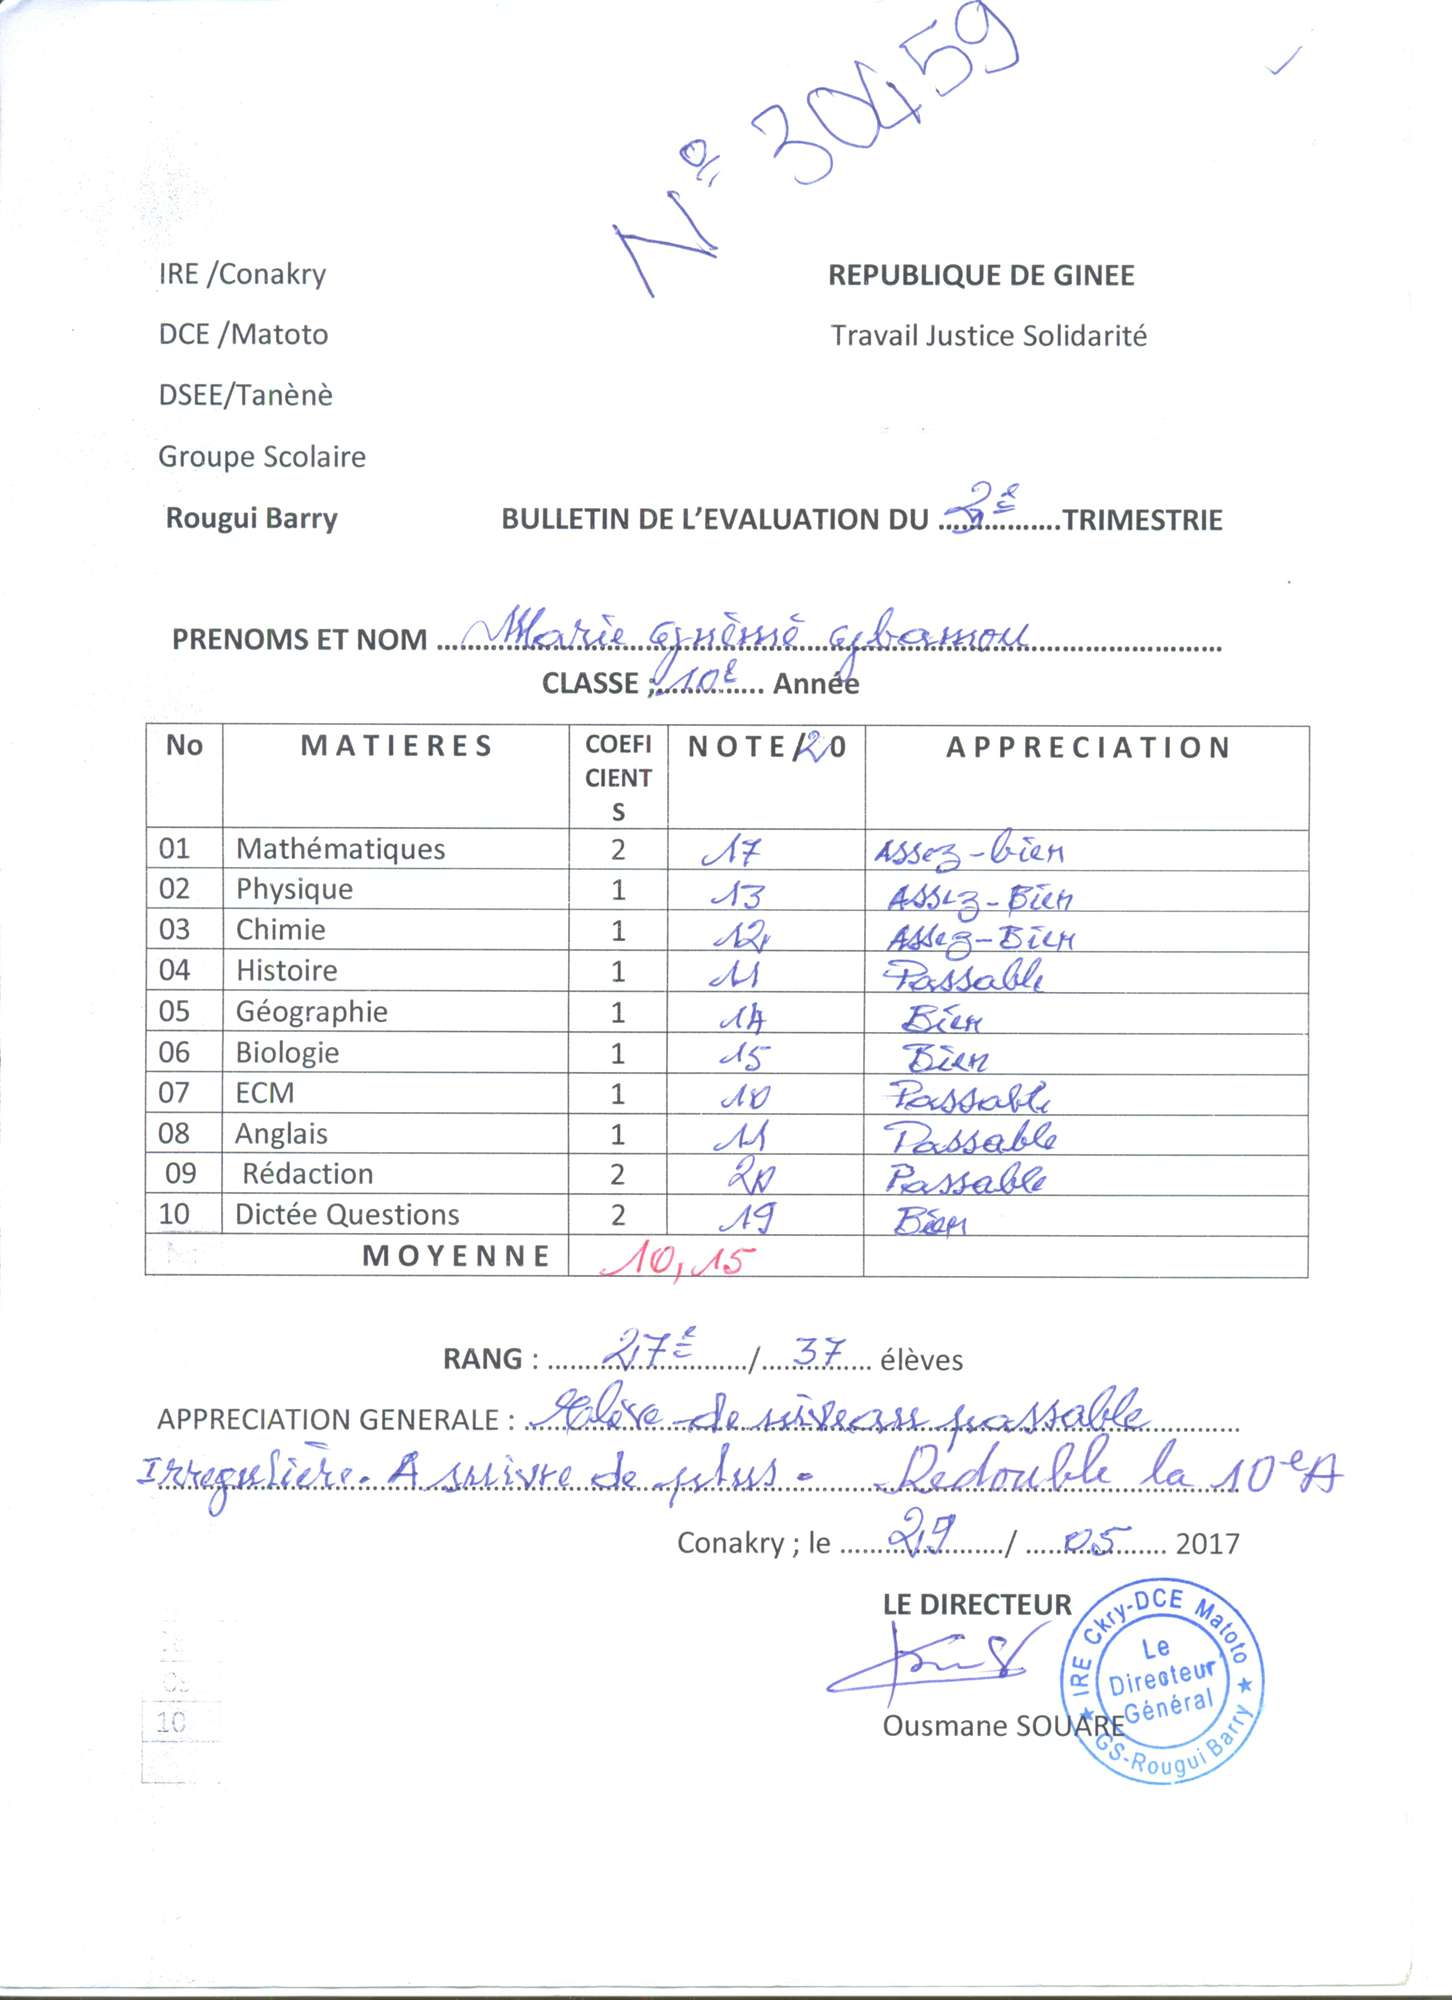 N° 30459
IRE /Conakry
REPUBLIQUE DE GINEE
DCE /Matoto
Travail Justice Solidarité
DSEE/Tanènè
Groupe Scolaire
Rougui Barry
BULLETIN DE L'EVALUATION DU ................TRIMESTRIE
PRENOMS ET NOM ... Marie Gnèmè Gbamou ...
CLASSE ; 10e ... Année
No MATIERES COEFICIENTS NOTE/20 APPRECIATION
01 Mathématiques 2 17 Assez-bien
02 Physique 1 13 Assez-Bien
03 Chimie 1 12 Assez-Bien
04 Histoire 1 11 Passable
05 Géographie 1 14 Bien
06 Biologie 1 15 Bien
07 ECM 1 10 Passable
08 Anglais 1 11 Passable
09 Rédaction 2 20 Passable
10 Dictée Questions 2 19 Bien
MOYENNE 10,15
RANG : ... 27e ... / ... 37 ... élèves
APPRECIATION GENERALE : Elève de niveau passable
Irregulière. A suivre de plus. Redouble la 10eA
Conakry ; le ... 29 ... / ... 05 ... 2017
LE DIRECTEUR
Ousmane SOUARE
IRE Ckry-DCE Matoto
Le
Directeur
Général
GS-Rougui Barry
10